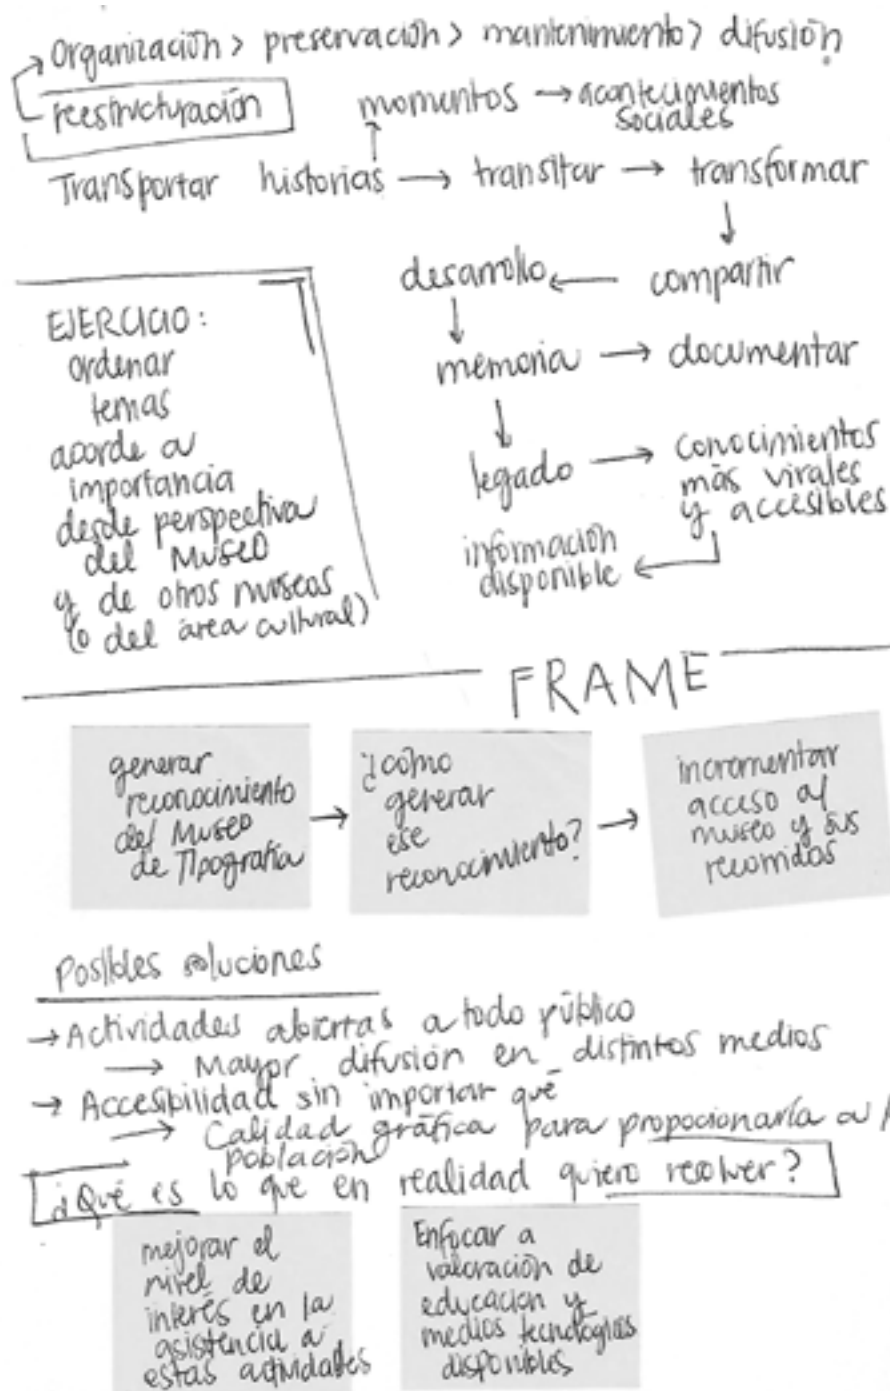 Organización > preservación > mantenimiento > difusión
reestructuración
momentos → acontecimientos
sociales
Transportar historias → transitar → transformar
desarrollo ← compartir
EJERCICIO:
ordenar
temas
acorde a
importancia
desde perspectiva
del Museo
y de otros museos
(o del área cultural)
memoria → documentar
legado → conocimientos
más virales
y accesibles
información
disponible ←
FRAME
generar
reconocimiento
del Museo
de Tipografía
→
¿cómo
generar
ese
reconocimiento?
→
incrementar
acceso al
museo y sus
recorridos
Posibles soluciones
→ Actividades abiertas a todo público
→ Mayor difusión en distintos medios
→ Accesibilidad sin importar qué
→ Calidad gráfica para propocionarla a
población
¿Qué es lo que en realidad quiero resolver?
mejorar el
nivel de
interés en la
asistencia a
estas actividades
Enfocar a
valoración de
educación y
medios tecnológios
disponibles